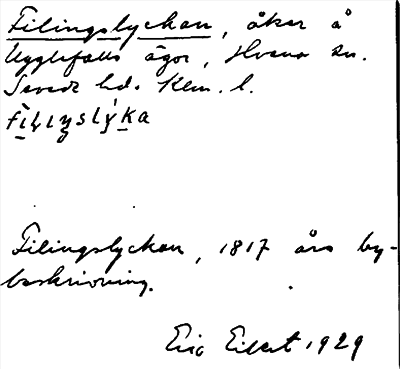 Filingslyckan, åker å
Ugglefalls ägor, Hvena sn.
Sevede hd. Klm. l.
Filingslyckan, 1817 års by-
beskrivning.
Eric Eilert 1929